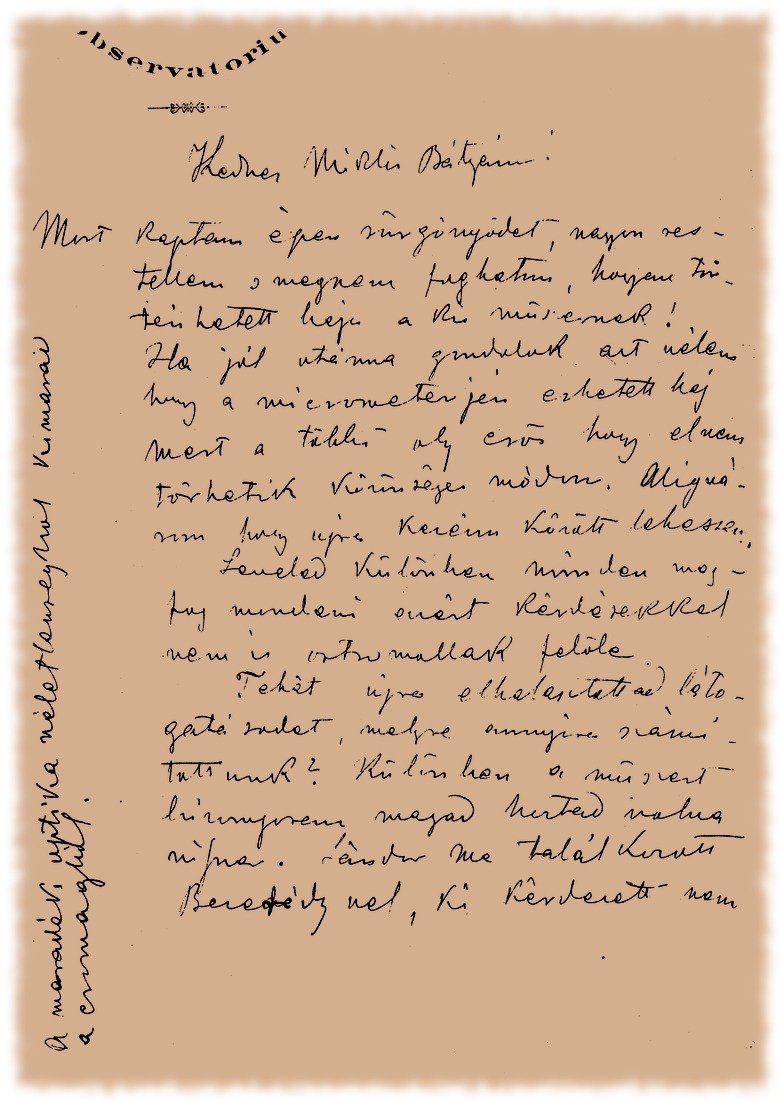 bservatoriu
Kedves Miklós Bátyám!
Most kaptam épen sürgönyödet, nagyon res-
tellem s megnem foghatom, hogyan tör-
ténhetett baja a kis műszernek!
Ha jól utánna gondolok azt vélem
hogy a micrometerjén eshetett baj
mert a többi oly erős hogy elnem
törhetik közönséges módon. Aligvá-
rom hogy újra kezeim között lehessen.
Leveled különben minden meg-
fog mondani ezért kérdésekkel
nem is ostromollak felőle
Tehát újra elhalasztottad láto-
gatásodat, melyre annyira számí-
tottunk? Különben a műszert
bizonyosan magad hoztad volna
vissza. Sándor ma találkozott
nél, ki kérdezett nem
A maradék optika véletlenségből kimarad
a csomagból.